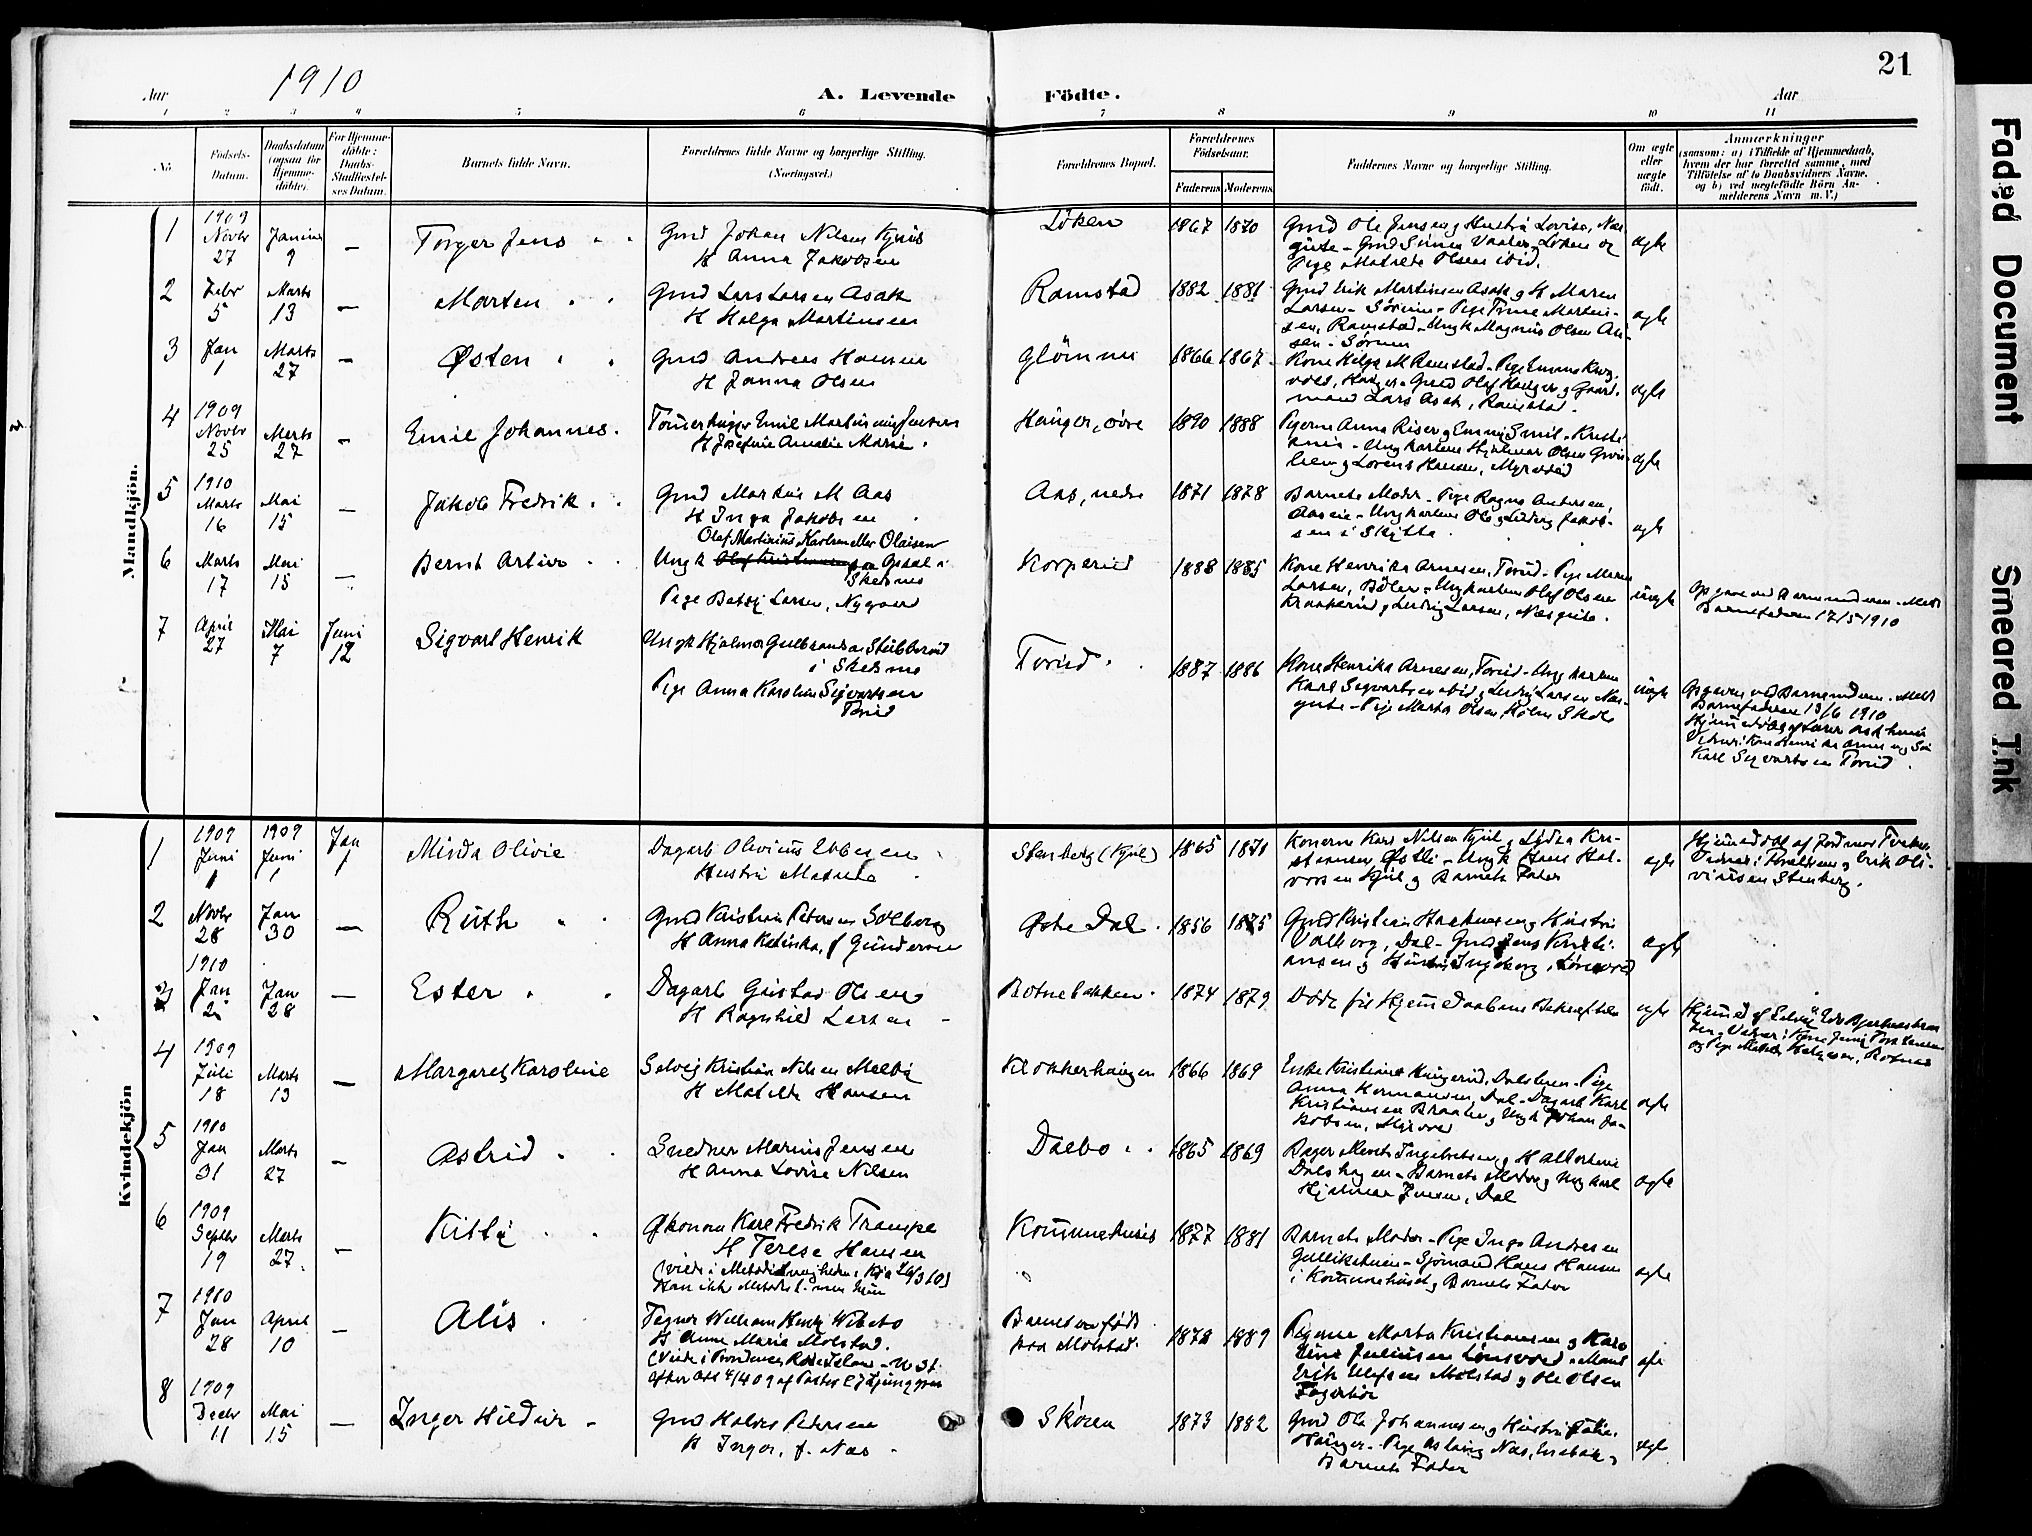 21
Aar 1910
A. Levende Födte.
Aar
1 2 3 4 5 6 7 8 9 10 11
No
Födsels-
Datum.
Daabsdatum
(ogsaa for
Hjemme-
döbte).
For Hjemme-
döbte:
Daabs-
Stadfæstel-
ses Datum.
Barnets fulde Navn.
Forældrenes fulde Navne og borgerlige Stilling.
(Næringsvei.)
Forældrenes Bopæl.
Forældrenes
Födselsaar.
Faderens Moderens
Faddernes Navne og borgerlige Stilling.
Om ægte
eller
uægte
födt.
Anmærkninger
(saasom: a) i Tilfælde af Hjemmedaab,
hvem der har forrettet samme, med
Tilföielse af to Daabsvidners Navne,
og b) ved uægtefödte Börn An-
melderens Navn m. V.)
Mandkjön.
1
1909
Novbr
27
Januar
9
—
Torger Jens
Gmd Johan Nilsen Kjuus
H Anna Jakobsen
Løken
1867 1870
Gmd Ole Jensen og Hustru Lovise, Næs-
gute - Gmd Simen Vaaler, Løken og
Pige Matilde Olsen ibid.
ægte
2
Febr
5
Marts
13
—
Marten
Gmd Lars Larsen Asak
H Helga Martinsen
Ramstad
1882 1881
Gmd Erik Martinsen Asak og H Maren
Larsen - Sørum - Pige Trine Martin-
sen, Ramstad - Ungk Magnus Olsen
sen - Sørum
ægte
3
Jan
1
Marts
27
—
Østen
Gmd Andreas Hansen
H Janna Olsen
Glømmi
1866 1867
Kone Helga M Ramstad - Pige Emma
Hauger - Gmd Olaf Hauger og Gaard-
mand Lars Asak, Ramstad.
ægte
4
1909
Novbr
25
Marts
27
—
Emil Johannes.
Tømmerhugger Emil Martinius Jensen
H Josefine Amalie Marie
Hauger, øvre
1890 1888
Pigerne Anna Riser og Emmy Smil - Kristi-
ania - Ungkarlene Hjalmar Olsen
og Lorens Hansen, Myrstad
ægte
5
1910
Marts
16
Mai
15
—
Jakob Fredrik
Gmd Markus M Aas
H Inga Jakobsen
Aas, nedre
1871 1878
Barnets Moder - Pige Ragna Andersen,
Aaseie - Ungkarlene Ole og Ludvig Jakob-
sen i Skytta.
ægte
6
Marts
17
Mai
15
—
Bernt Artur
Olaf Martinius Karlsen eller Olaisen
Ungk Olaf Kristiansen paa Opsal i
Skedsmo
Pige Betsy Larsen, Nygaard
Korperud
1888 1885
Kone Henrika Arnesen, Torud - Pige Maren
Larsen, Bølen - Ungkarlene Olaf Olsen
Kraakerud og Ludvig Larsen, Næsgute.
uægte
Opgave ved Barnemoderen. Meldt
Barnefaderen 17/5 1910
7
April
27
Mai
7
Juni
12
Sigvart Henrik
Ungk Hjalmar Gulbrandsen Stubberud
i Skedsmo
Pige Anna Karoline Sigvartsen
Torud
Torud
1887 1886
Kone Henrika Arnesen, Torud - Ungkarlene
Karl Sigvartsen ibid og Ludvig Larsen Næs-
gute - Pige Marta Olsen, Holm Skole
uægte
Opgaven ved Barnemoderen. Meldt
Barnefaderen 13/6 1910
Hjemmedøbt af Lærer
Karl Sigvartsen Torud.
Kvindekjön
1
1909
Juni
1
1909
Juni
1
Jan
1
Minda Olivie
Dagarb Olivius Ebbesen
Hustru Matilde
Stenberg (Kjul)
1865 1871
Konerne Kari Nilsen Kjul og Lydia Kri-
stiansen Østli - Ungk Hans Hal-
vorsen Kjul og Barnets Fader
ægte
Hjemmedøbt af Jordmor
Vidner: Forældrene og Erik Oli-
viusen Stenberg.
2
Novbr
28
Jan
30
—
Ruth
Gmd Kristian Petersen Solberg
H Anna Katinka, f Gundersen
Østre Dal
1856 1875
Gmd Kristian Haakensen og Hustru
Valborg, Dal - Gmd Jens Kristi-
ansen og Hustru Ingeborg, Lønsvold
ægte
3
1910
Jan
2
Jan
28
—
Ester
Dagarb Gustav Olsen
H Ragnhild Larsen
Botnebakken
1874 1879
Døde før Hjemmedaabens Bekræftelse
ægte
4
1909
Juli
18
Marts
13
—
Margaret Karoline
Selvej Kristian Nilsen Melby
H Matilde Hansen
Klokkerhaugen
1866 1869
Enke Kristiane Haugerud, Dalsløen - Pige
Anna Hermansen, Dal - Dagarb Karl
Kristiansen Braaten og Ungk Johan Ja-
kobsen,
ægte
5
1910
Jan
31
Marts
27
—
Astrid
Snedker Marius Jensen
H Anna Lovise Nilsen
Dalbo
1865 1869
Bager Ingebretsen og H Albertine
Dalshagen - Barnets Moder og Ungkarl
Hjalmar Jensen, Dal
ægte
6
1909
Septbr
19
Marts
27
—
Kitty
Økonom Karl Fredrik Trampe
H Terese Hansen
(viede i Metodistmenigheden, Kria
Han ikke Metodist - men hun
Kommunehuset
1877 1881
Barnets Moder - Pige Inga Andresen
Gullikstuen - Sjømand Hans Hansen
i Kommunehuset og Barnets Fader
ægte
7
1910
Jan
28
April
10
—
Alis
Tegner William Henry Wibeto
H Anne Maria Molstad.
(Viede i Providence, Rode Island - U St.
efter Att 4/4 09 af Pastor C J Ljunggren
Barnet er født
paa Molstad.
1878 1889
Pigerne Marta Kristiansen og Karo-
line Juliusen Lønsvold - Mand
Erik Olufsen Molstad og Ole Olsen
Fagerhøi
ægte
8
1909
Decbr
11
Mai
15
—
Inger Hildur
Gmd Halvor Petersen
H Inger, f. Næs
Skøien
1873 1882
Gmd Ole Johannesen og Hustru
Hauger - Pige Aslaug Næs, Enebak og
Barnets Fader
ægte
Faded Document
Smeared Ink